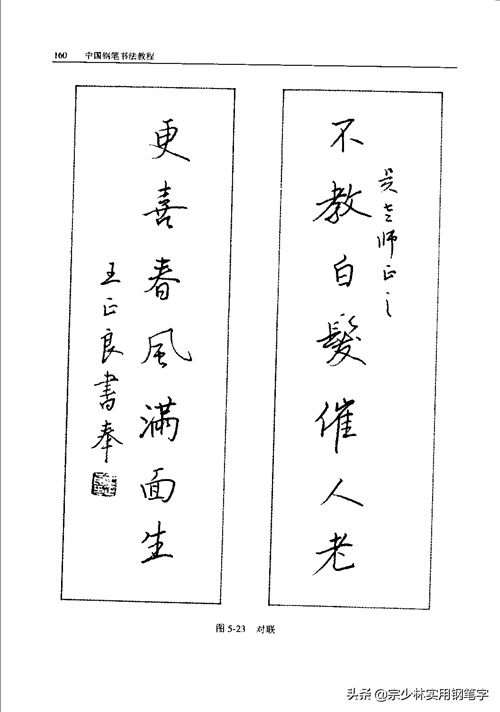 160 中国钢笔书法教程
吴老师正之
不教白髮催人老
更喜春風滿面生
王正良書奉
图 5-23 对联
头条 @宗少林实用钢笔字